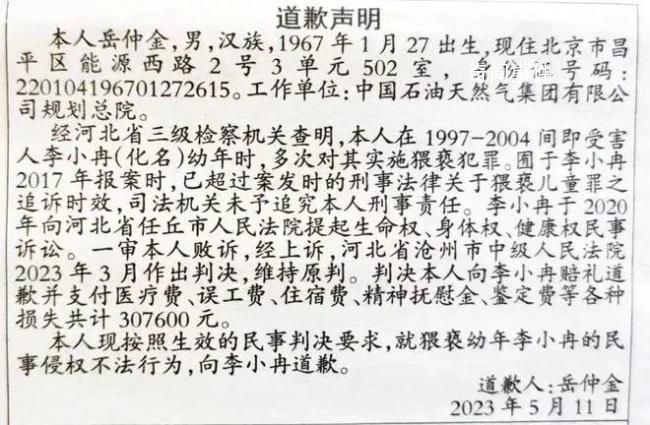 道歉声明
本人岳仲金,男,汉族,1967年1月27出生,现住北京市昌
平区能源西路2号3单元502室,身份证号码:
220104196701272615。工作单位:中国石油天然气集团有限公
司规划总院。
经河北省三级检察机关查明,本人在1997-2004间即受害
人李小冉(化名)幼年时,多次对其实施猥亵犯罪。囿于李小冉
2017年报案时,已超过案发时的刑事法律关于猥亵儿童罪之
追诉时效,司法机关未予追究本人刑事责任。李小冉于2020
年向河北省任丘市人民法院提起生命权、身体权、健康权民事
诉讼。一审本人败诉,经上诉,河北省沧州市中级人民法院
2023年3月作出判决,维持原判。判决本人向李小冉赔礼道
歉并支付医疗费、误工费、住宿费、精神抚慰金、鉴定费等各种
损失共计307600元。
本人现按照生效的民事判决要求,就猥亵幼年李小冉的民
事侵权不法行为,向李小冉道歉。
道歉人:岳仲金
2023年5月11日